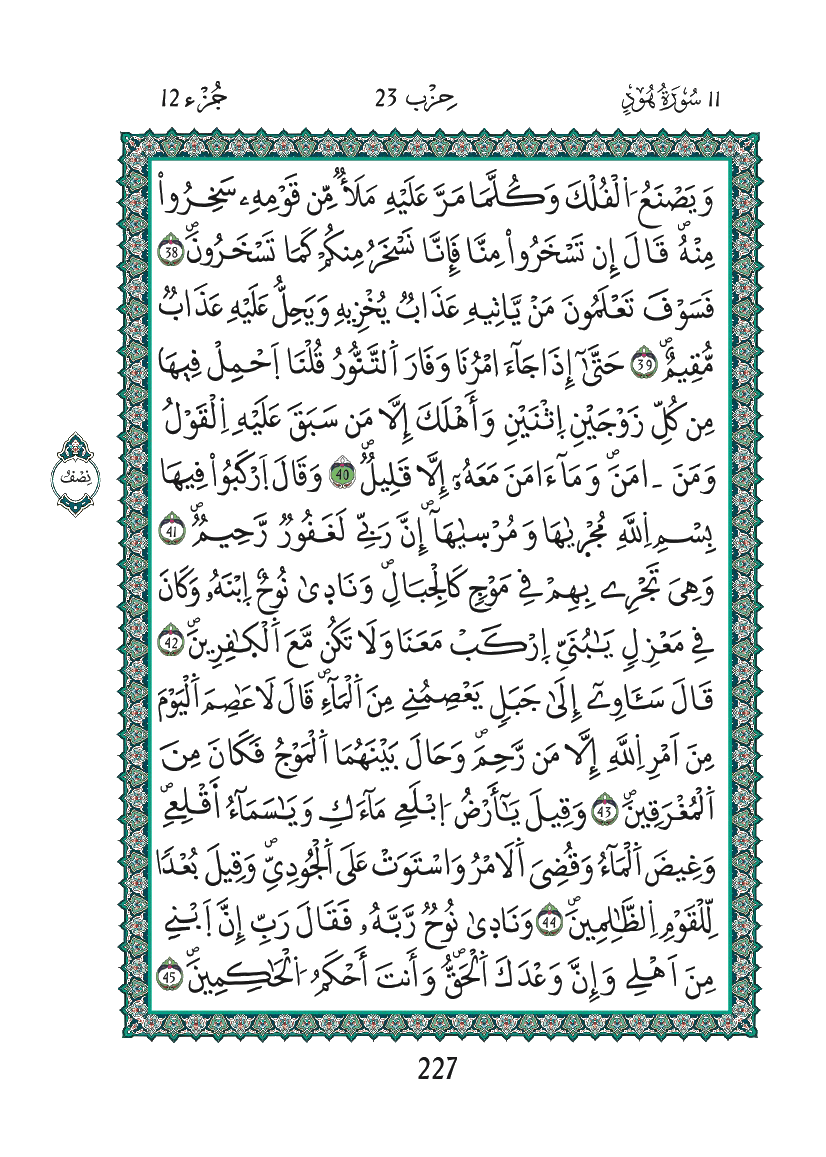 11 سُورَةُ هُودٍ
حِزْب 23
جُزْء 12
وَيَصْنَعُ اُ۬لْفُلْكَ وَكُلَّمَا مَرَّ عَلَيْهِ مَلَأٞ مِّن قَوْمِهِۦ سَخِرُواْ
مِنْهُۖ قَالَ إِن تَسْخَرُواْ مِنَّا فَإِنَّا نَسْخَرُ مِنكُمْ كَمَا تَسْخَرُونَۖ 38
فَسَوْفَ تَعْلَمُونَ مَنْ يَّاتِيهِ عَذَابٞ يُخْزِيهِ وَيَحِلُّ عَلَيْهِ عَذَابٞ
مُّقِيمٌۖ 39 حَتَّىٰٓ إِذَا جَآءَ امْرُنَا وَفَارَ اَ۬لتَّنُّورُ قُلْنَا اَحْمِلْ فِيهَا
مِن كُلِّ زَوْجَيْنِ اِثْنَيْنِ وَأَهْلَكَ إِلَّا مَن سَبَقَ عَلَيْهِ اِ۬لْقَوْلُ
وَمَنَ ـ امَنَۖ وَمَآ ءَامَنَ مَعَهُۥٓ إِلَّا قَلِيلٞۖ 40 وَقَالَ اَ۪رْكَبُواْ فِيهَا
نِصْف
بِسْمِ اِ۬للَّهِ مُجْر۪ىٰهَا وَمُرْس۪ىٰهَآۖ إِنَّ رَبِّے لَغَفُورٞ رَّحِيمٞۖ 41
وَهِيَ تَجْرِے بِهِمْ فِے مَوْجٖ كَالْجِبَالِۖ وَنَاد۪ىٰ نُوحٌ اِ۪بْنَهُۥ وَكَانَ
فِے مَعْزِلٖ يَٰبُنَيِّ اِ۪رْكَب مَّعَنَا وَلَا تَكُن مَّعَ اَ۬لْكٰ۪فِرِينَۖ 42
قَالَ سَـَٔاوِےٓ إِلَىٰ جَبَلٖ يَعْصِمُنِے مِنَ اَ۬لْمَآءِۖ قَالَ لَا عَاصِمَ اَ۬لْيَوْمَ
مِنَ اَمْرِ اِ۬للَّهِ إِلَّا مَن رَّحِمَۖ وَحَالَ بَيْنَهُمَا اَ۬لْمَوْجُ فَكَانَ مِنَ
اَ۬لْمُغْرَقِينَۖ 43 وَقِيلَ يَٰٓأَرْضُ اُ۪بْلَعِے مَآءَكِ وَيَٰسَمَآءُ اَ۬قْلِعِےۖ
وَغِيضَ اَ۬لْمَآءُ وَقُضِيَ اَ۬لَامْرُ وَاسْتَوَتْ عَلَى اَ۬لْجُودِيِّۖ وَقِيلَ بُعْداٗ
لِّلْقَوْمِ اِ۬لظَّٰلِمِينَۖ 44 وَنَاد۪ىٰ نُوحٞ رَّبَّهُۥ فَقَالَ رَبِّ إِنَّ اَ۪بْنِے
مِنَ اَهْلِے وَإِنَّ وَعْدَكَ اَ۬لْحَقُّۖ وَأَنتَ أَحْكَمُ اُ۬لْحَٰكِمِينَۖ 45
227